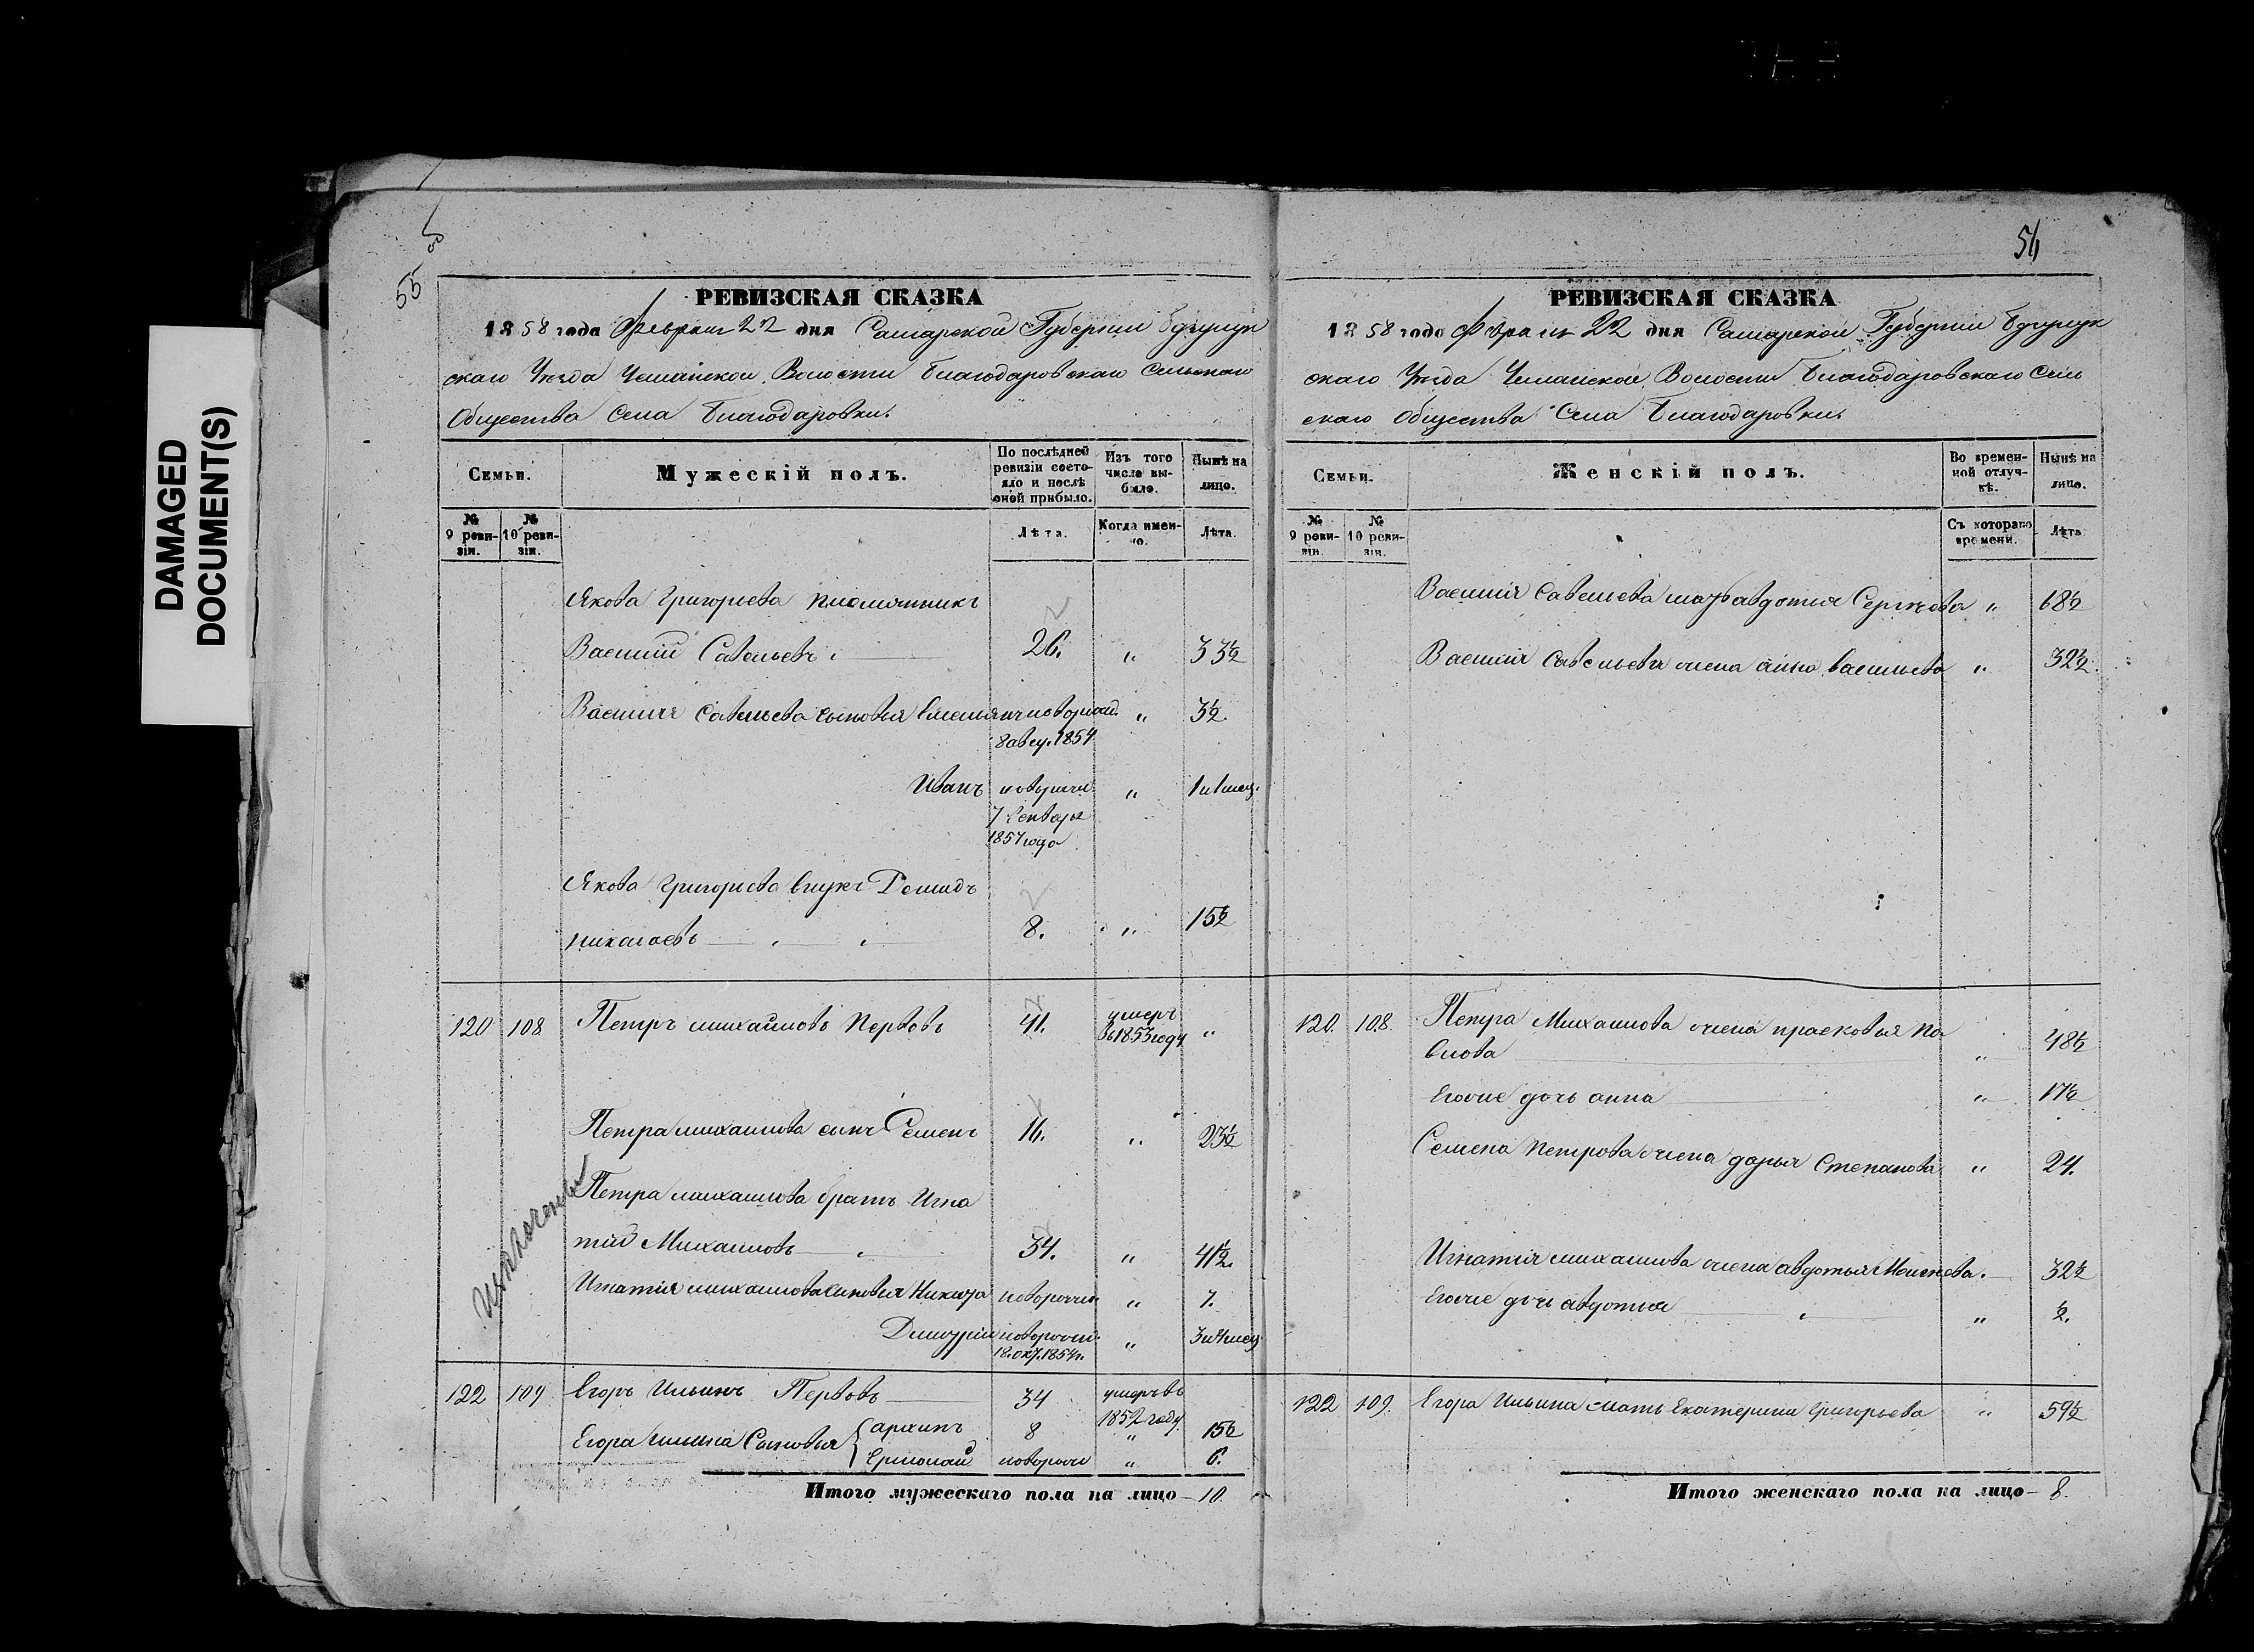 DAMAGED
DOCUMENT(S)
55
54
РЕВИЗСКАЯ СКАЗКА
1858 года Февраля 22 дня Самарской Губерніи Бугурук
скаго Уезда Волости Благодаровскаго Сельскаго
Общества Села Благодаровки.
Семьи.
Мужескій полъ.
По послѣдней ревизіи состояло и послѣ оной прибыло.
Изъ того числа выбыло.
Нынѣ на лицо.
№ 9 ревизіи.
№ 10 ревизіи.
Лѣта.
Когда именно.
Лѣта.
Якова Григорьева племянникъ
Василій Савельевъ 26. " 33½
Василія Савельева сыновья новорожд. " 3½
8 авгу. 1854
Иванъ " 1 и 1 мец.
7 Сентября
1857 года
Якова Григорьева внукъ Демидъ
Николаевъ 8. " 15½
120 108 Петръ Михайловъ Первовъ 41. умеръ въ 1853 году "
Петра Михайлова сынъ Семенъ 16. " 23½
Петра Михайлова братъ Игна
тій Михайловъ 34. " 41½
Игнатія Михайлова сыновья Никита новорожд. " 7.
Дмитрій новорожд. " 3 и 4 мец.
18. окт. 1854 г.
122 109 Егоръ Ильинъ Первовъ 34 умеръ въ 1852 году
Егора Ильина Сыновья архипъ 8 " 15½
Ермолай новорож " 6.
Итого мужескаго пола на лицо 10.
РЕВИЗСКАЯ СКАЗКА
1858 года 22 дня Самарской Губерніи Бугурук
скаго Уезда Волости Благодаровскаго Сель
скаго Общества Села Благодаровки.
Семьи.
Женскій полъ.
Во временной отлучкѣ.
Нынѣ на лицо.
№ 9 ревизіи.
№ 10 ревизіи.
Съ котораго времени.
Лѣта
Василія Савельева мать авдотья Сергѣева " 68½
Василія Савельева жена анна васильева " 32½
120. 108. Петра Михайлова жена прасковья Па
влова " 48½
Егоже дочь анна " 17½
Семена Петрова жена дарья Степанова " 24.
Игнатія Михайлова жена авдотья Моисеева. 32½
Егоже дочь авдотья " ½.
122 109. Егора Ильина мать Екатерина Григорьева " 59½
Итого женскаго пола на лицо 8.